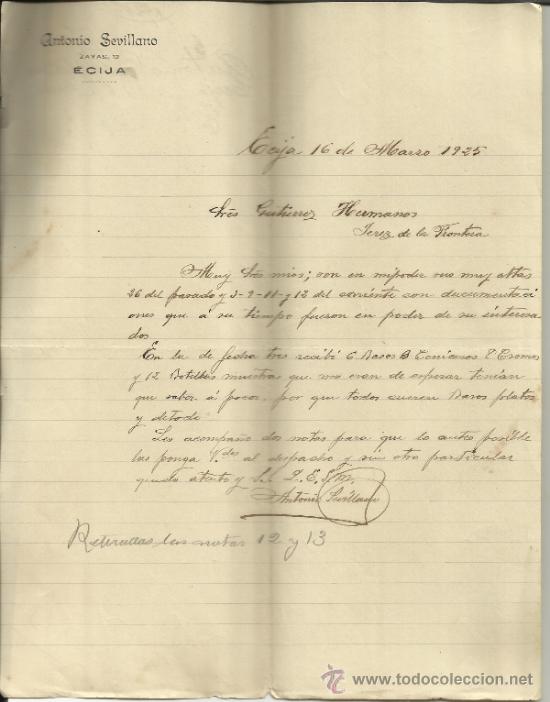 Antonio Sevillano
ZAYAS, 12
ECIJA
Ecija 16 de Marzo 1925
Sres Gutierrez Hermanos
Jerez de la Frontera
Muy Sres mios; son en mi poder sus muy attas
26 del pasado y 3-9-11-y 12 del corriente con documentaci
ones que á su tiempo fueron en poder de su interesa
dos
En la de fecha tres recibó 6 Basos B 
y 12 Botellas muestras que eran de esperar tenian
que saber á pocos, por que todos quieren Basos platos
y de todo
Les acompaño dos notas para que lo antes posible
las ponga Vdes al despacho y sin otro particular
queda atento y S. S. Q. E. S/M.
Antonio Sevillano
Retiradas las notas 12 y 13
todocoleccion
http://www.todocoleccion.net